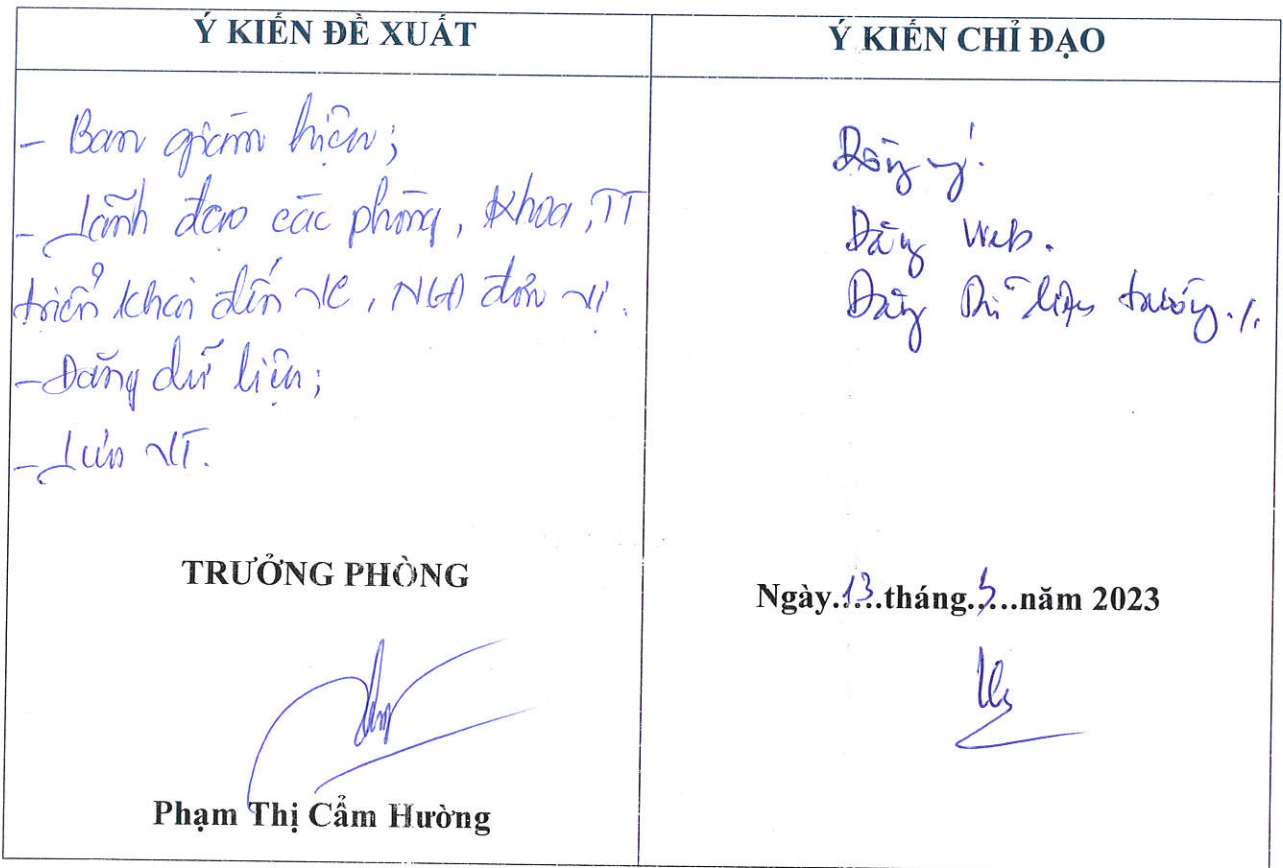 Ý KIẾN ĐỀ XUẤT
- Ban giám hiệu;
- Lãnh đạo các phòng, khoa, TT
triển khai đến VC, NLĐ đơn vị.
- Đăng dữ liệu;
- Lưu VT.
TRƯỞNG PHÒNG
Phạm Thị Cẩm Hường
Ý KIẾN CHỈ ĐẠO
Đồng ý.
Đăng Web.
Đăng dữ liệu trường./.
Ngày.13.tháng.5...năm 2023